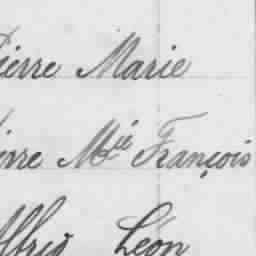 Pierre Marie
Pierre Mie François
Alfred Léon